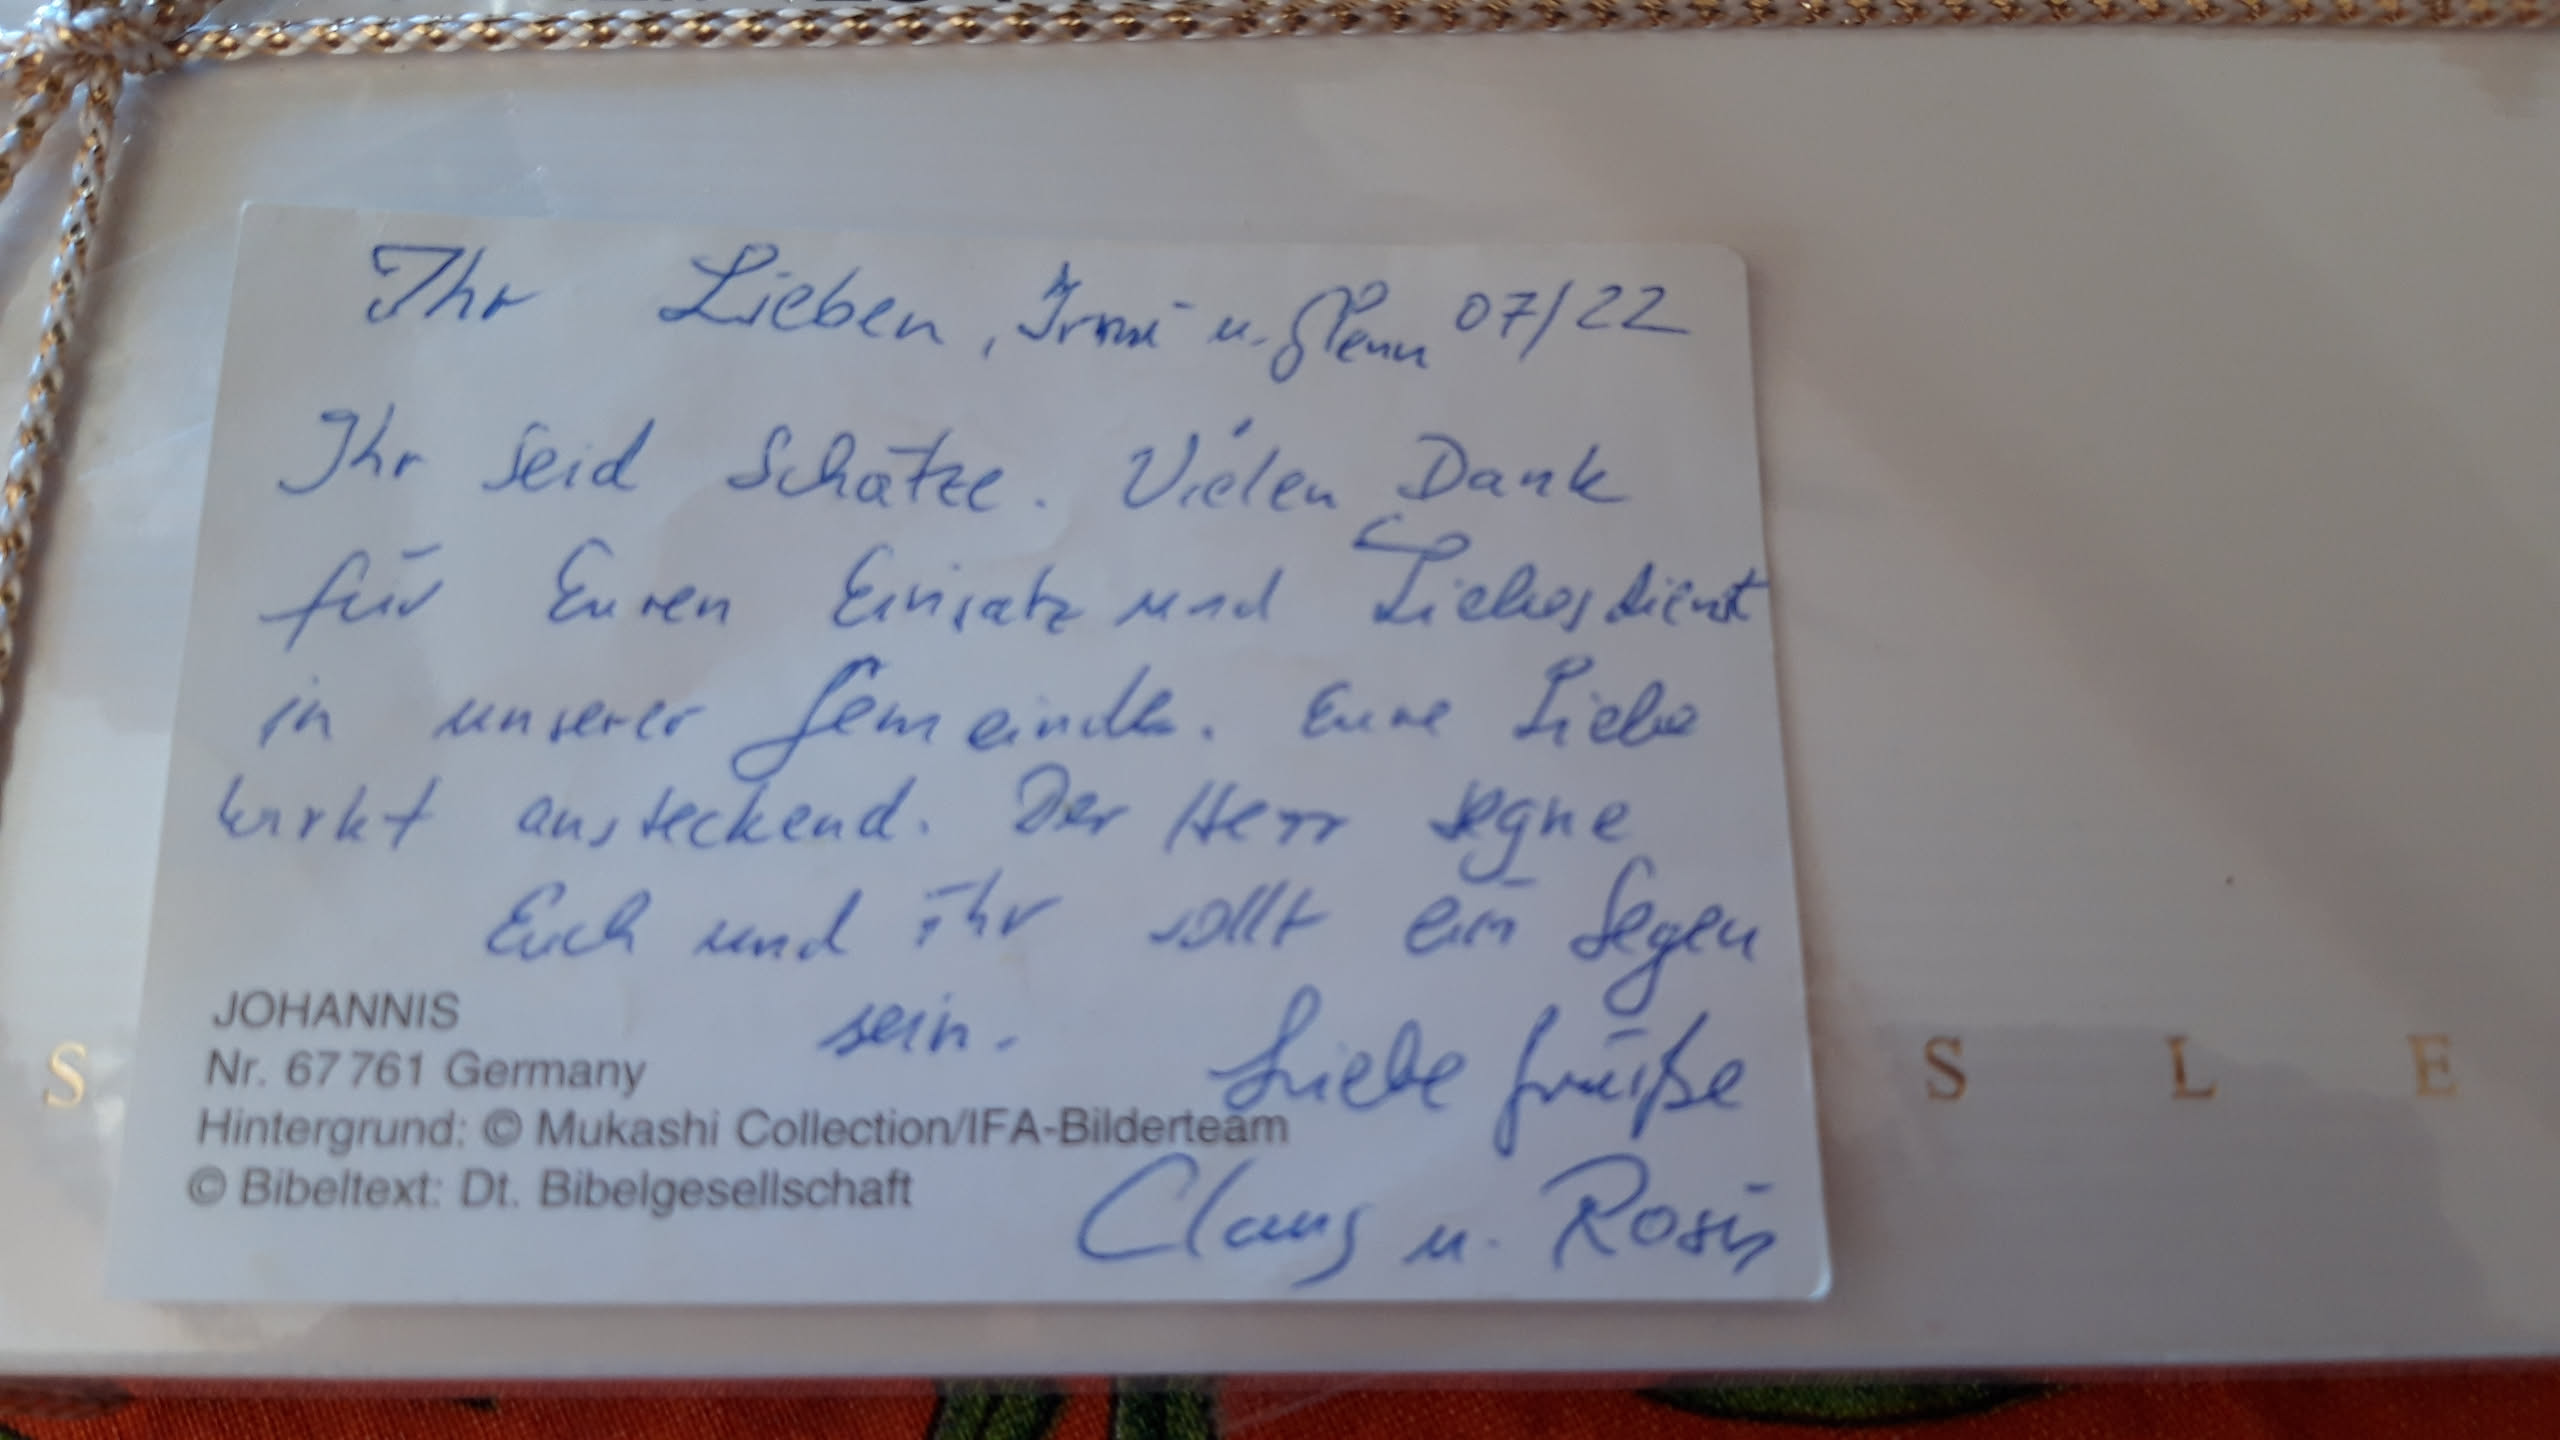 Ihr Lieben, Irmi u. Glenn 07/22
Ihr seid Schätze. Vielen Dank
für Euren Einsatz und Liebesdienst
in unserer Gemeinde. Eure Liebe
wirkt ansteckend. Der Herr segne
Euch und ihr sollt ein Segen
sein.
Liebe Grüße
Claus u. Rosi
JOHANNIS
Nr. 67 761 Germany
Hintergrund: © Mukashi Collection/IFA-Bilderteam
© Bibeltext: Dt. Bibelgesellschaft
S
S L E